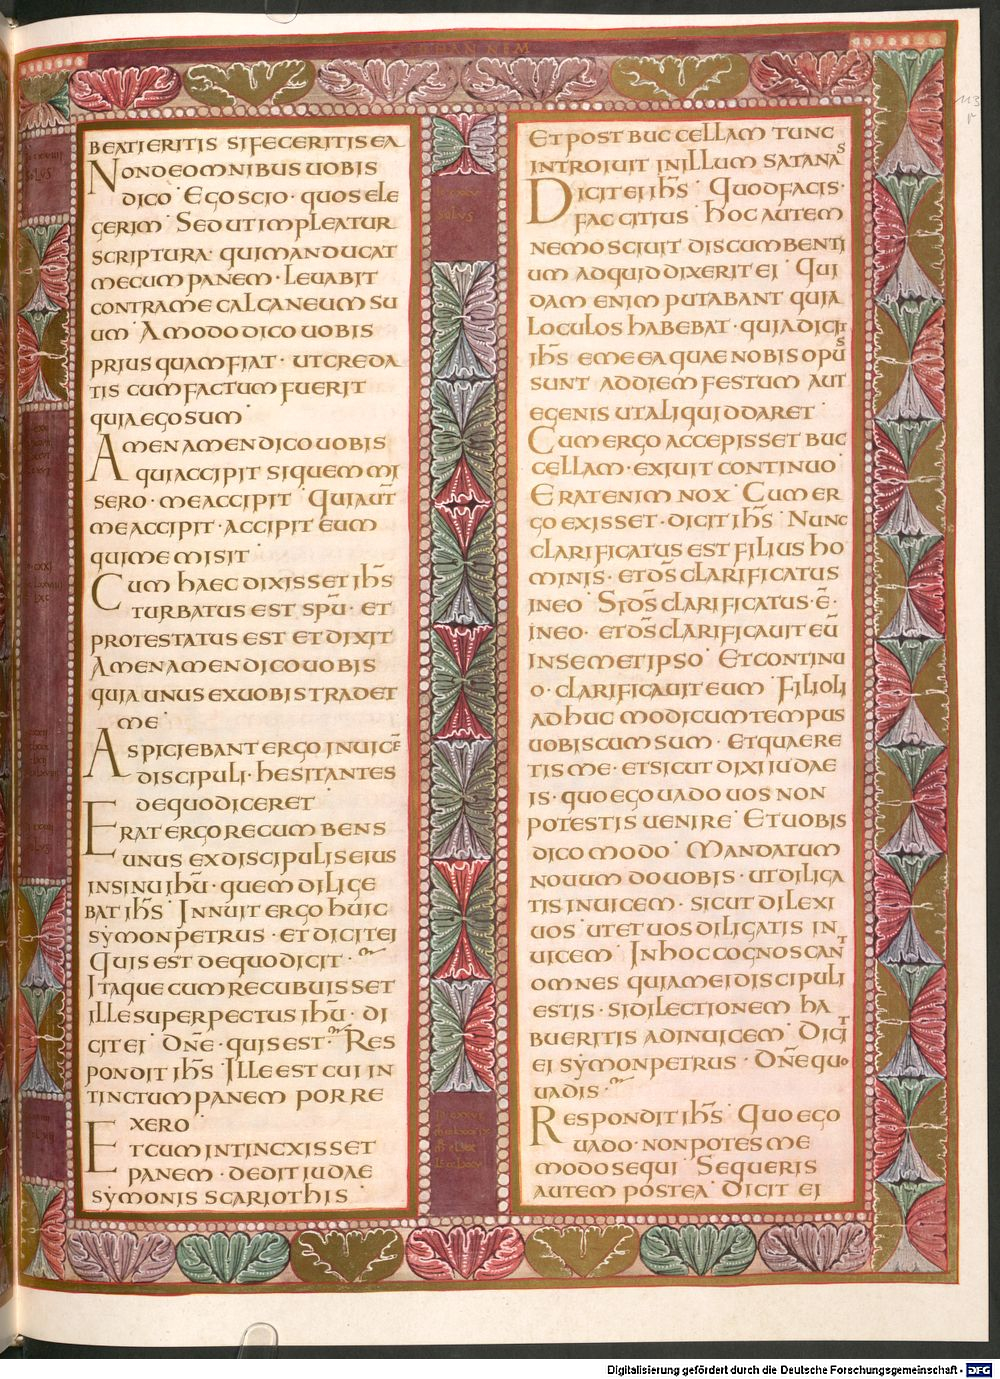 IOHANNEM
113
r
BEATI ERITIS SI FECERITIS EA
NON DE OMNIBUS UOBIS
DICO · EGO SCIO · QUOS ELE
GERIM · SED UT IMPLEATUR
SCRIPTURA · QUI MANDUCAT
MECUM PANEM · LEUABIT
CONTRA ME CALCANEUM SU
UM · AMODO DICO UOBIS
PRIUSQUAM FIAT · UT CREDA
TIS CUM FACTUM FUERIT
QUIA EGO SUM ·
AMEN AMEN DICO UOBIS
QUI ACCIPIT SI QUEM MI
SERO · ME ACCIPIT QUI AUT̄
ME ACCIPIT · ACCIPIT EUM
QUI ME MISIT ·
CUM HAEC DIXISSET IH̄S
TURBATUS EST SPŪ · ET
PROTESTATUS EST ET DIXIT
AMEN AMEN DICO UOBIS
QUIA UNUS EX UOBIS TRADET
ME ·
ASPICIEBANT ERGO INUICĒ
DISCIPULI · HESITANTES
DE QUO DICERET ·
ERAT ERGO RECUMBENS
UNUS EX DISCIPULIS EIUS
IN SINU IHŪ · QUEM DILIGE
BAT IH̄S · INNUIT ERGO HUIC
SYMON PETRUS · ET DICIT EI
QUIS EST DE QUO DICIT ·
ITAQUE CUM RECUBUISSET
ILLE SUPER PECTUS IHŪ · DI
CIT EI · DN̄E · QUIS EST · RES
PONDIT IH̄S · ILLE EST CUI IN
TINCTUM PANEM PORRE
XERO ·
ET CUM INTINCXISSET
PANEM · DEDIT IUDAE
SYMONIS SCARIOTHIS ·
SOLUS
ET POST BUCCELLAM TUNC
INTROIUIT IN ILLUM SATANAS
DICIT EI IH̄S · QUOD FACIS ·
FAC CITIUS · HOC AUTEM
NEMO SCIUIT DISCUMBENTI
UM AD QUID DIXERIT EI · QUI
DAM ENIM PUTABANT QUIA
LOCULOS HABEBAT · QUIA DICIT
IH̄S EME EA QUAE NOBIS OPUS
SUNT AD DIEM FESTUM AUT
EGENIS UT ALIQUID DARET ·
CUM ERGO ACCEPISSET BUC
CELLAM · EXIUIT CONTINUO ·
ERAT ENIM NOX · CUM ER
GO EXISSET · DICIT IH̄S · NUNC
CLARIFICATUS EST FILIUS HO
MINIS · ET DS̄ CLARIFICATUS
IN EO · SI DS̄ CLARIFICATUS · Ē ·
IN EO · ET DS̄ CLARIFICAUIT EŪ
IN SEMET IPSO · ET CONTINU
O · CLARIFICAUIT EUM · FILIOLI
ADHUC MODICUM TEMPUS
UOBISCUM SUM · ET QUAERE
TIS ME · ET SICUT DIXI IUDAE
IS · QUO EGO UADO UOS NON
POTESTIS UENIRE · ET UOBIS
DICO MODO · MANDATUM
NOUUM DO UOBIS · UT DILIGA
TIS INUICEM · SICUT DILEXI
UOS · UT ET UOS DILIGATIS IN
UICEM · IN HOC COGNOSCANT
OMNES QUIA MEI DISCIPULI
ESTIS · SI DILECTIONEM HA
BUERITIS ADINUICEM · DICIT
EI SYMON PETRUS · DN̄E QUO
UADIS ·
RESPONDIT IH̄S · QUO EGO
UADO · NON POTES ME
MODO SEQUI · SEQUERIS
AUTEM POSTEA · DICIT EI
Digitalisierung gefördert durch die Deutsche Forschungsgemeinschaft - DFG